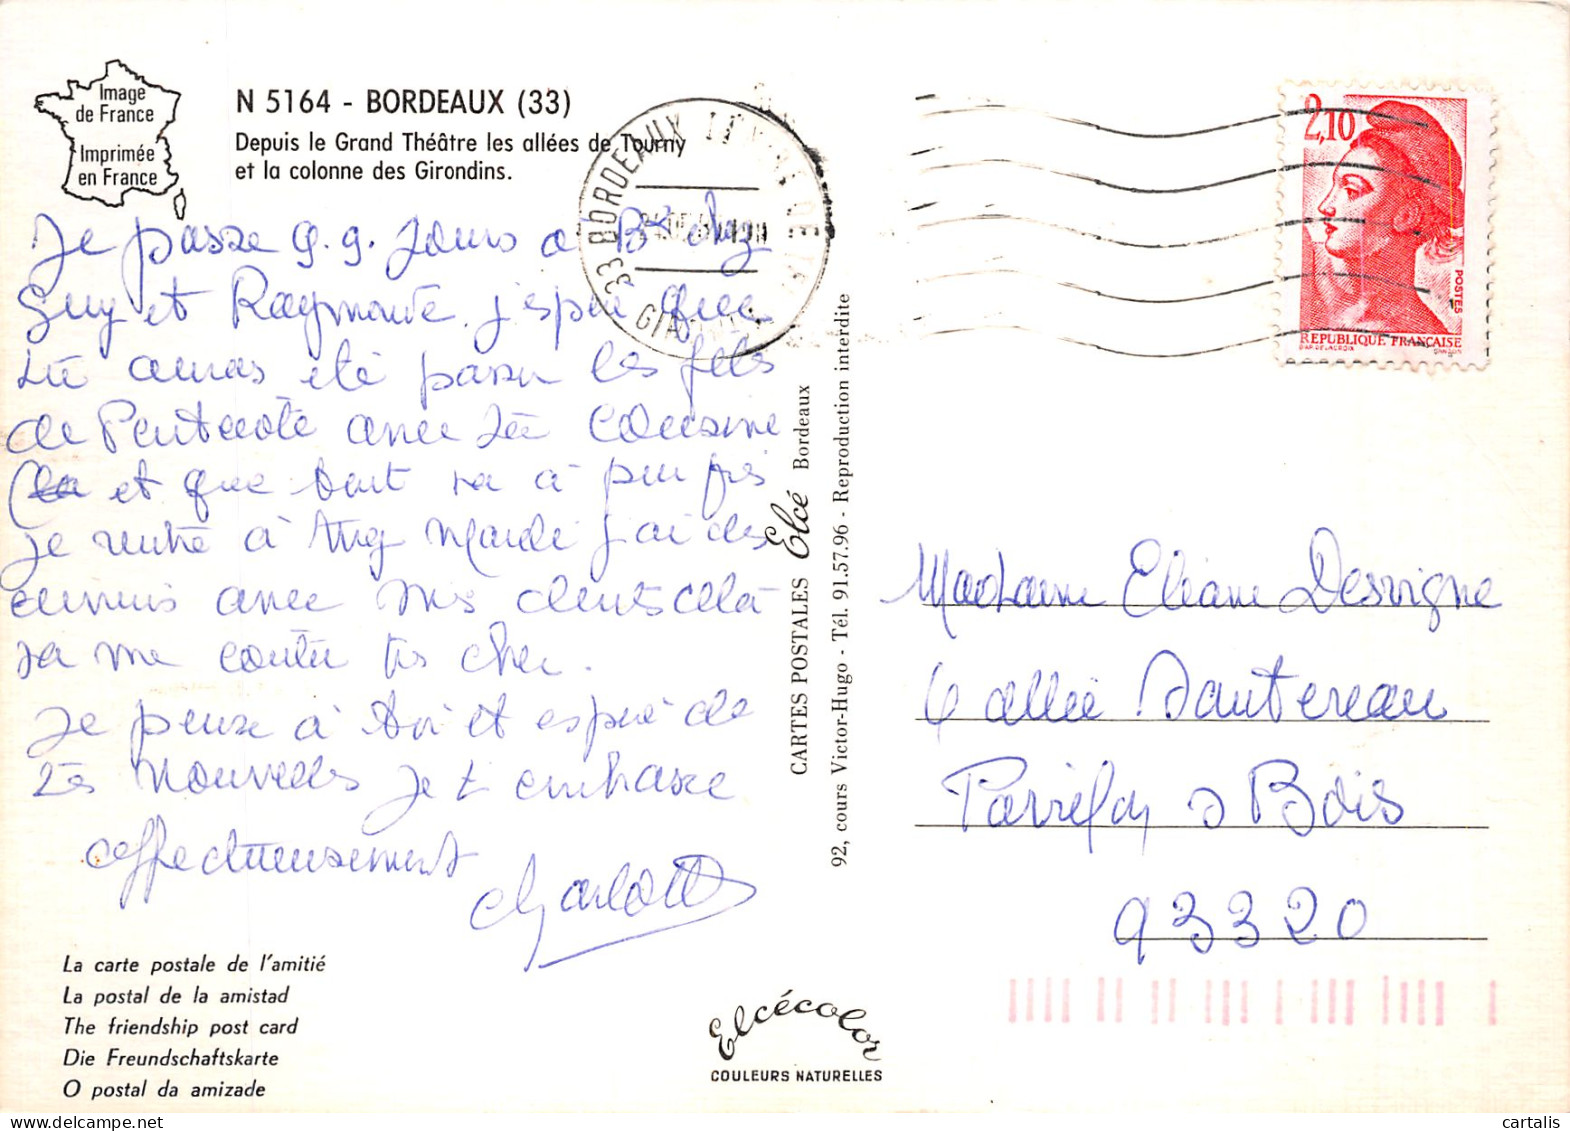 Image
de France
Imprimée
en France
N 5164 - BORDEAUX (33)
Depuis le Grand Théâtre les allées de Tourny
et la colonne des Girondins.
33 BORDEAUX
GIRONDE
2,10
POSTES
REPUBLIQUE FRANÇAISE
Je passe q.q. jours a Bx chez
Guy et Raymonde. j'espère que
tu auras été passer les fêts
de Pentecôte avec ta cousine
et que tout va à peu près
Je rentre à Ang Mardi j'ai des
ennuis avec mes dents cela
va me coûter très cher.
Je pense à toi et espère de
tes nouvelles Je t embrasse
affectueusement
Charlotte
CARTES POSTALES Elcé Bordeaux
92, cours Victor-Hugo - Tél. 91.57.96 - Reproduction interdite
Madame Eliane Desvigne
6 allée Sautereau
Pavillon s Bois
93320
La carte postale de l'amitié
La postal de la amistad
The friendship post card
Die Freundschaftskarte
O postal da amizade
Elcécolor
COULEURS NATURELLES
cartalis